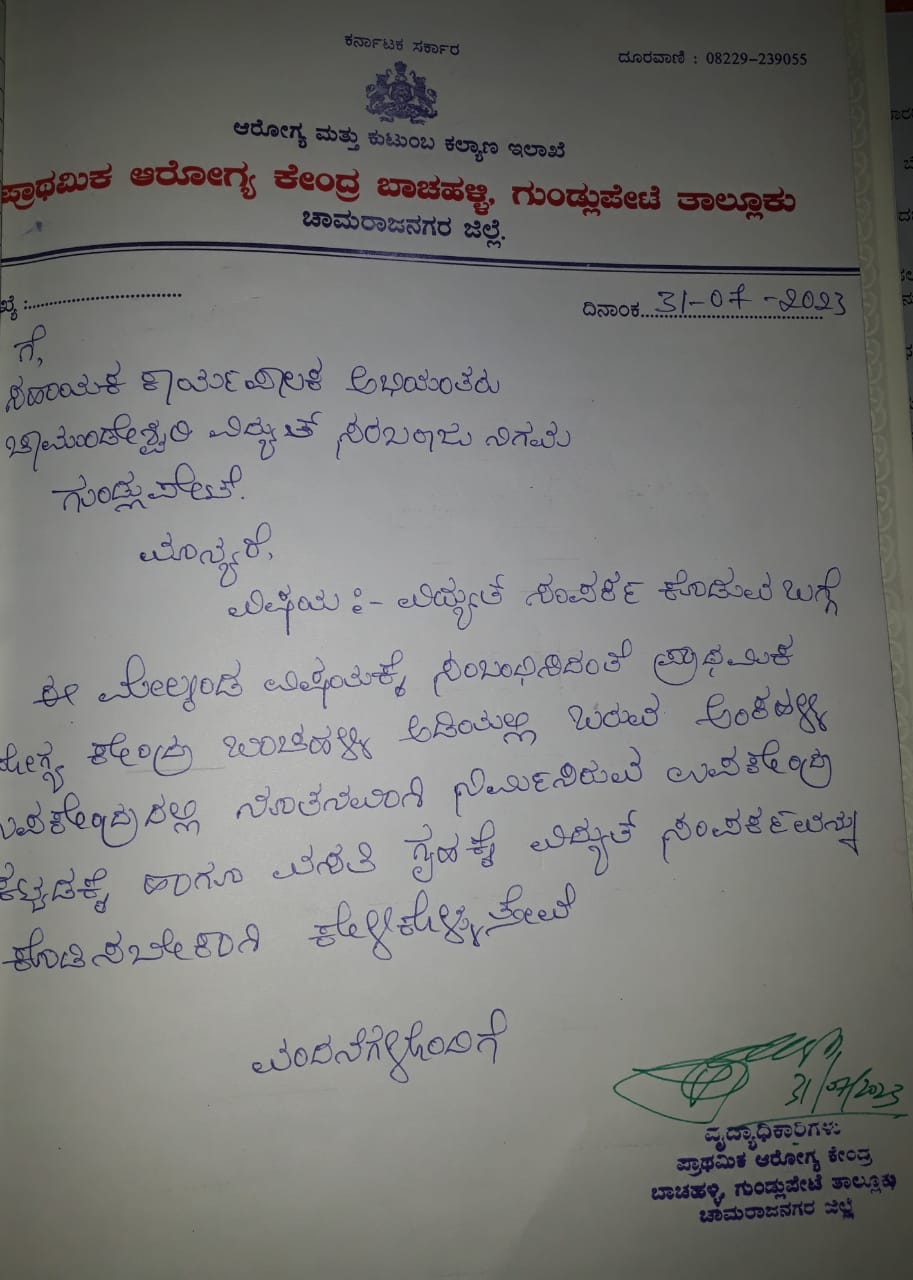 ಕರ್ನಾಟಕ ಸರ್ಕಾರ
ದೂರವಾಣಿ : 08229-239055
ಆರೋಗ್ಯ ಮತ್ತು ಕುಟುಂಬ ಕಲ್ಯಾಣ ಇಲಾಖೆ
ಪ್ರಾಥಮಿಕ ಆರೋಗ್ಯ ಕೇಂದ್ರ ಬಾಚಹಳ್ಳಿ, ಗುಂಡ್ಲುಪೇಟೆ ತಾಲ್ಲೂಕು
ಚಾಮರಾಜನಗರ ಜಿಲ್ಲೆ.
ಖ್ಯೆ :
ದಿನಾಂಕ 31-07-2023
ಗೆ,
ಸಹಾಯಕ ಕಾರ್ಯಪಾಲಕ ಅಭಿಯಂತರು
ಚಾಮುಂಡೇಶ್ವರಿ ವಿದ್ಯುತ್ ಸರಬರಾಜು ನಿಗಮ
ಗುಂಡ್ಲುಪೇಟೆ.
ಮಾನ್ಯರೆ,
ವಿಷಯ :- ವಿದ್ಯುತ್ ಸಂಪರ್ಕ ಕೊಡುವ ಬಗ್ಗೆ
ಈ ಮೇಲ್ಕಂಡ ವಿಷಯಕ್ಕೆ ಸಂಬಂಧಿಸಿದಂತೆ ಪ್ರಾಥಮಿಕ
ರೋಗ್ಯ ಕೇಂದ್ರ ಬಾಚಹಳ್ಳಿ ಅಡಿಯಲ್ಲಿ ಬರುವ ಅಂಕಹಳ್ಳಿ
ಉಪಕೇಂದ್ರದಲ್ಲಿ ನೂತನವಾಗಿ ನಿರ್ಮಿಸಿರುವ ಉಪಕೇಂದ್ರ
ಕಟ್ಟಡಕ್ಕೆ ಹಾಗೂ ವಸತಿ ಗೃಹಕ್ಕೆ ವಿದ್ಯುತ್ ಸಂಪರ್ಕವನ್ನು
ಕೊಡಿಸಬೇಕಾಗಿ ಕೇಳಿಕೊಳ್ಳುತ್ತೇವೆ
ವಂದನೆಗಳೊಂದಿಗೆ
31/07/2023
ವೈದ್ಯಾಧಿಕಾರಿಗಳು
ಪ್ರಾಥಮಿಕ ಆರೋಗ್ಯ ಕೇಂದ್ರ
ಬಾಚಹಳ್ಳಿ, ಗುಂಡ್ಲುಪೇಟೆ ತಾಲ್ಲೂಕು
ಚಾಮರಾಜನಗರ ಜಿಲ್ಲೆ